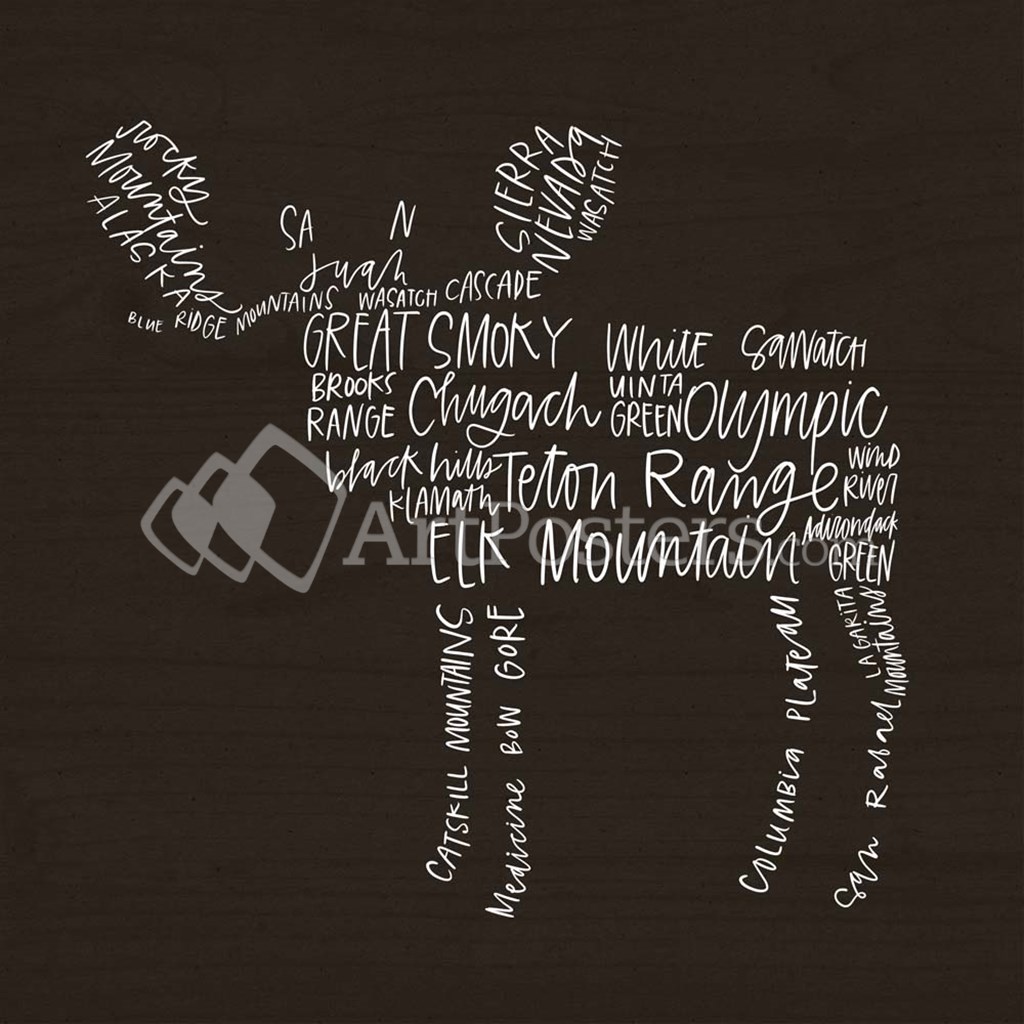 Rocky
Mountains
ALASKA
SIERRA
NEVADA
WASATCH
SAN
Juan
BLUE RIDGE MOUNTAINS WASATCH CASCADE
GREAT SMOKY WHITE SAWATCH
BROOKS
RANGE
Chugach
UINTA
GREEN
Olympic
black hills
KLAMATH
Teton Range
WIND
RIVER
ELK Mountain
Adirondack
GREEN
ArtPosters.com
CATSKILL MOUNTAINS
Medicine BOW GORE
COLUMBIA PLATEAU
LA GARITA
San Rafael Mountains